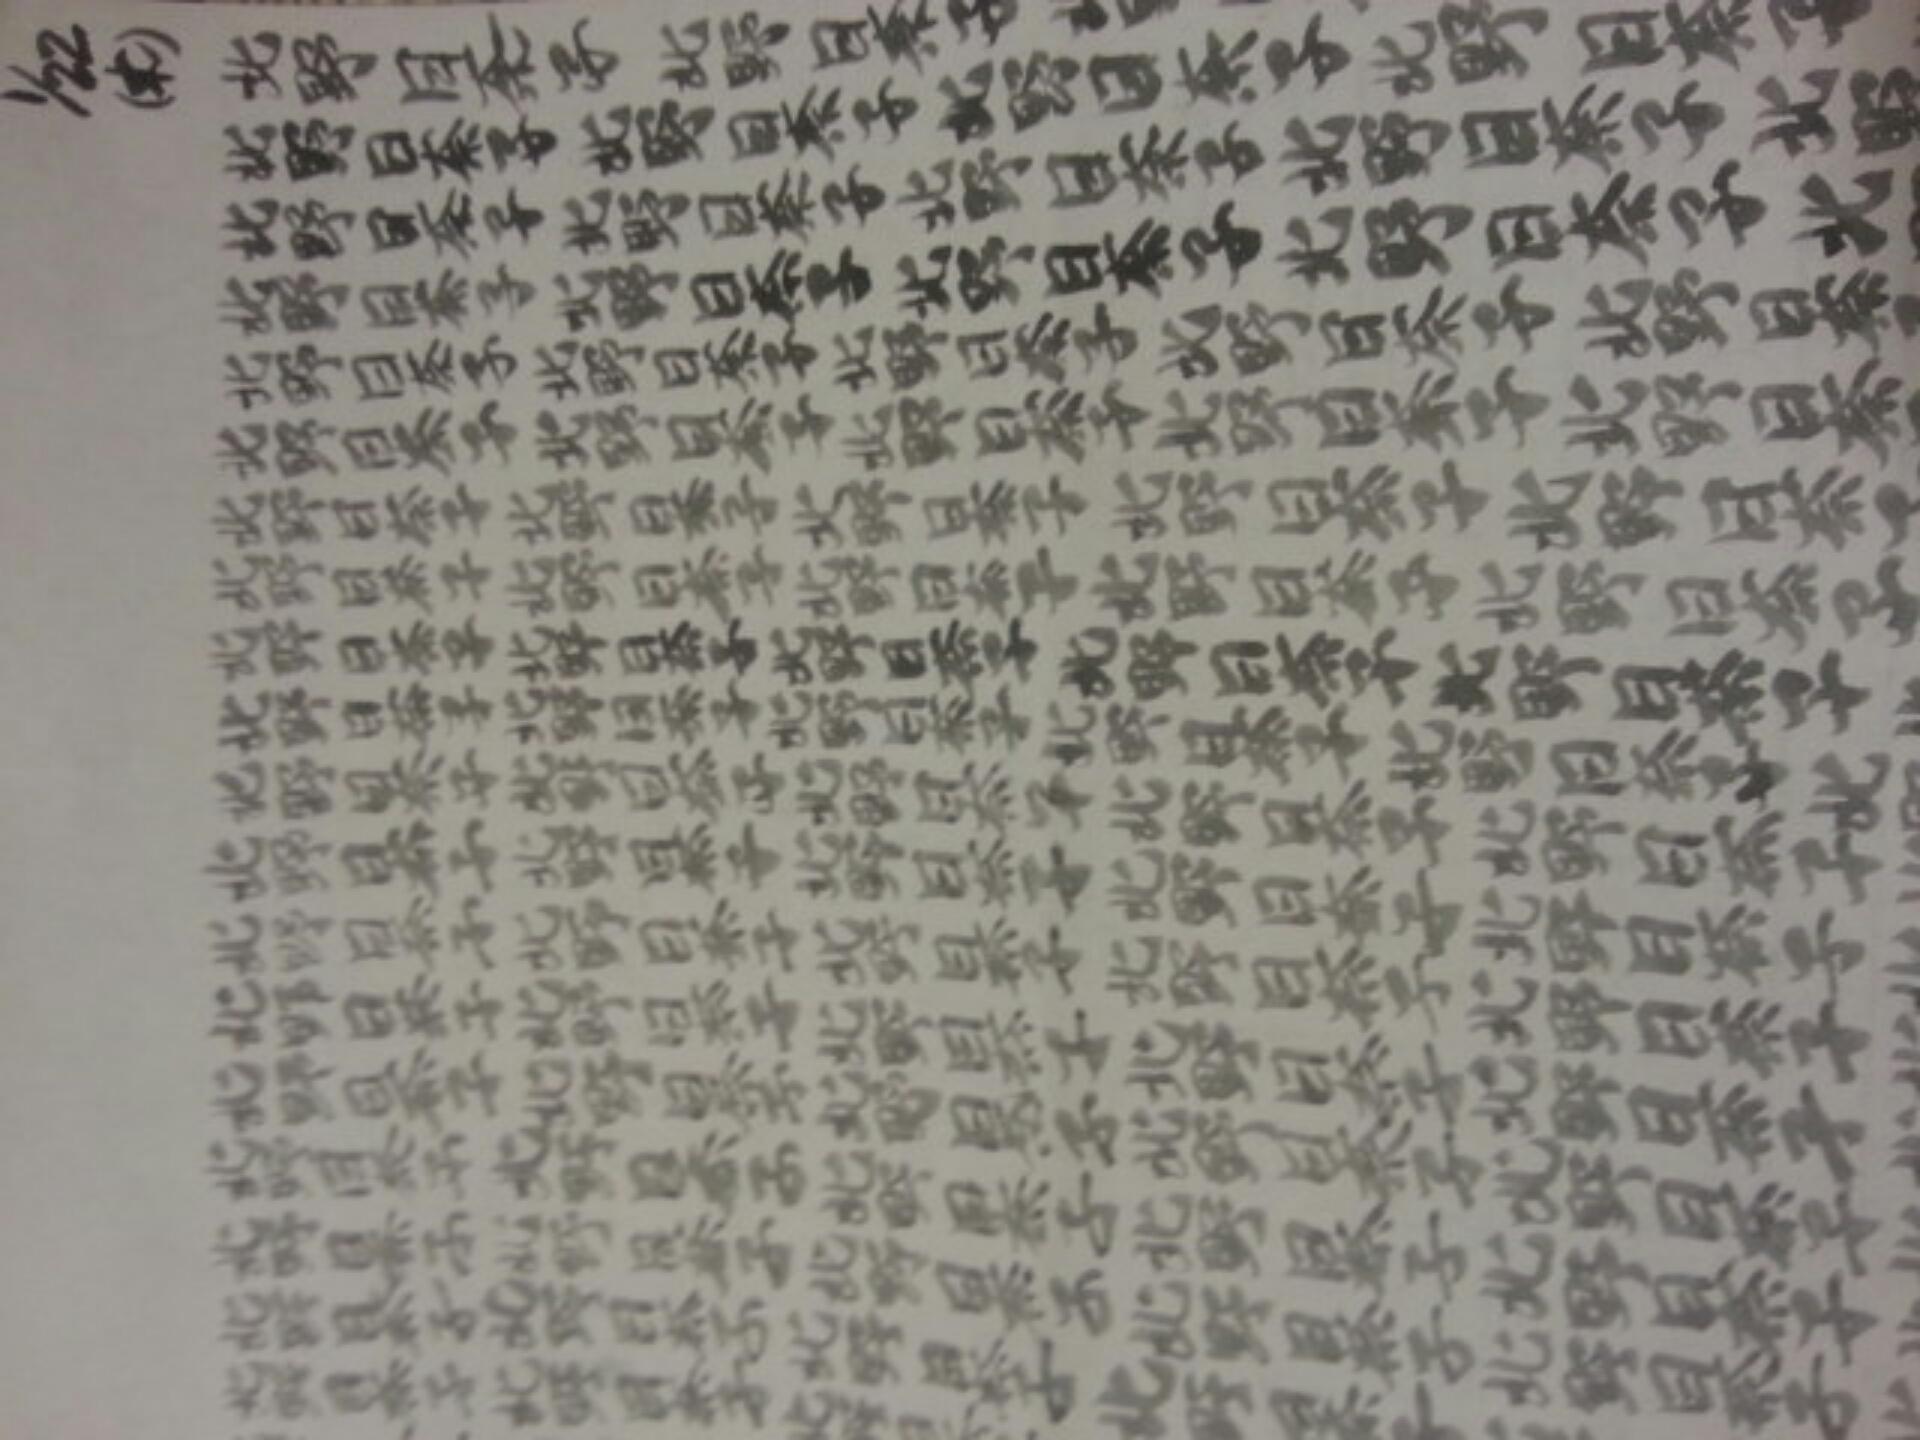 1/22(木)
北野日奈子北野日奈子北野
北野日奈子北野日奈子北野日奈子北野日奈子
北野日奈子北野日奈子北野日奈子北野日奈子北野
北野日奈子北野日奈子北野日奈子北野日奈子北
北野日奈子北野日奈子北野日奈子北野日奈子北野日奈
北野日奈子北野日奈子北野日奈子北野日奈子北野日奈
北野日奈子北野日奈子北野日奈子北野日奈子北野日奈子
北野日奈子北野日奈子北野日奈子北野日奈子北野日奈子
北野日奈子北野日奈子北野日奈子北野日奈子北野日奈子
北野日奈子北野日奈子北野日奈子北野日奈子北野日奈子北
北野日奈子北野日奈子北野日奈子北野日奈子北野日奈子
北野日奈子北野日奈子北野日奈子北野日奈子北野日奈子
北野日奈子北野日奈子北野日奈子北野日奈子北野日奈子
北野日奈子北野日奈子北野日奈子北野日奈子北野日奈子
北野日奈子北野日奈子北野日奈子北野日奈子北野日奈子
北野日奈子北野日奈子北野日奈子北野日奈子北野日奈子
北野日奈子北野日奈子北野日奈子北野日奈子北野日奈子
北野日奈子北野日奈子北野日奈子北野日奈子
北野日奈子北野日奈子